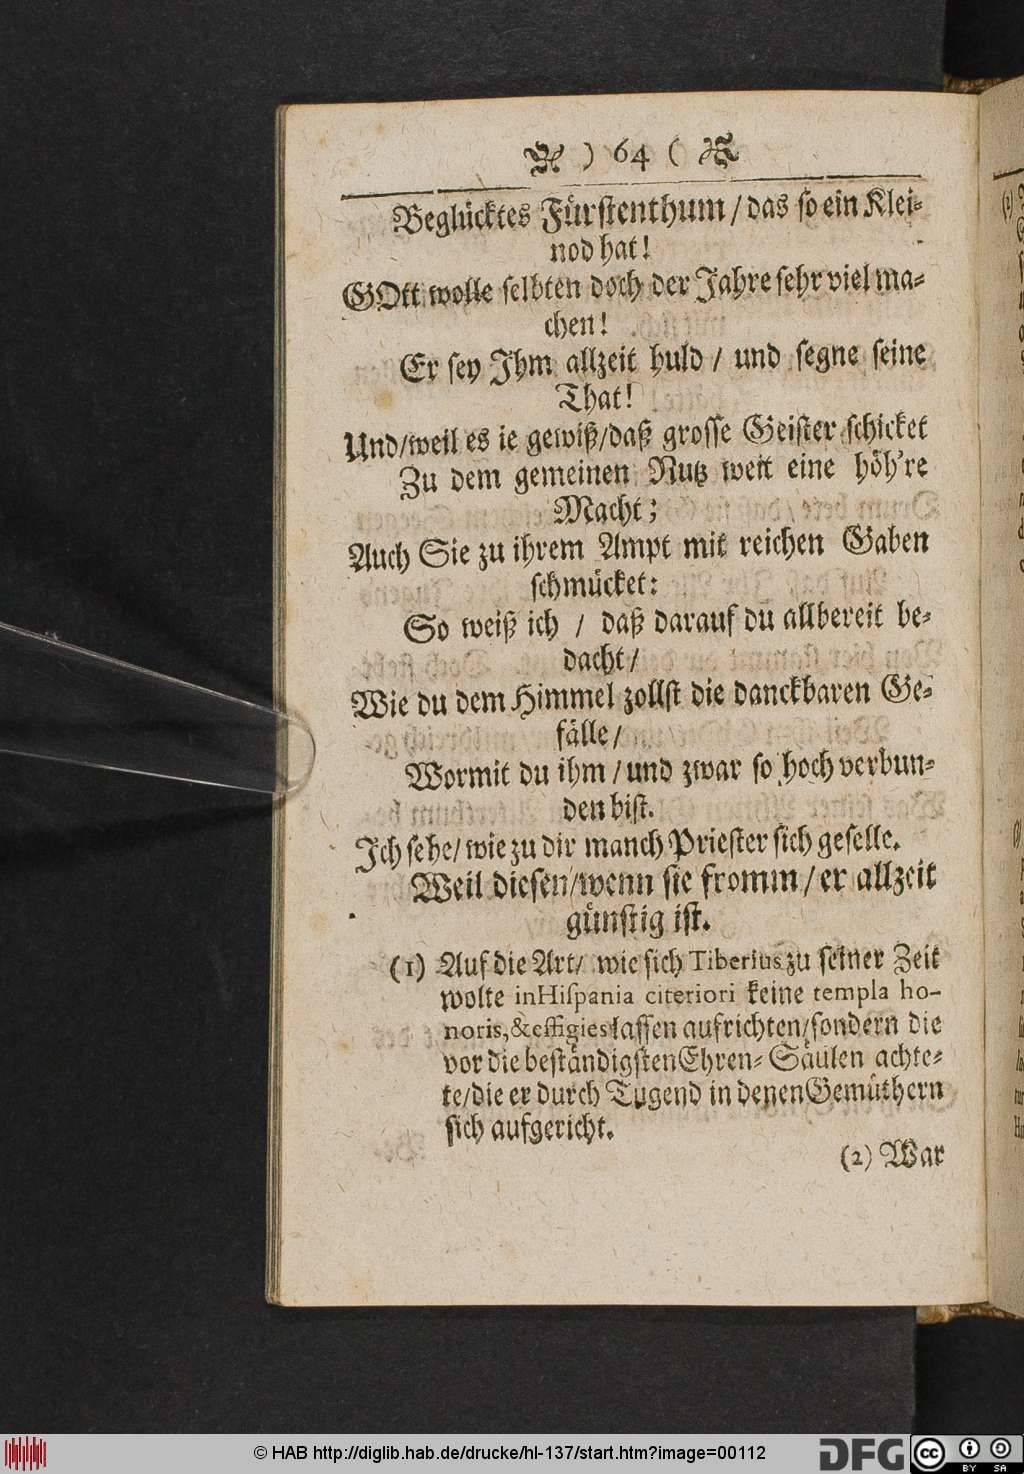 ) 64 (
Beglücktes Fürstenthum / das so ein Klei-
nod hat!
GOtt wolle selbten doch der Jahre sehr viel ma-
chen!
Er sey Ihm allzeit huld / und segne seine
That!
Und/weil es ie gewiß/daß grosse Geister schicket
Zu dem gemeinen Nutz weit eine höh're
Macht;
Auch Sie zu ihrem Ampt mit reichen Gaben
schmücket:
So weiß ich / daß darauf du allbereit be-
dacht/
Wie du dem Himmel zollst die danckbaren Ge-
fälle/
Wormit du ihm / und zwar so hoch verbun-
den bist.
Ich sehe/ wie zu dir manch Priester sich geselle.
Weil diesen/wenn sie fromm / er allzeit
günstig ist.
(1) Auf die Art/ wie sich Tiberius zu seiner Zeit
wolte in Hispania citeriori keine templa ho-
noris, & effigies lassen aufrichten/sondern die
vor die beständigsten Ehren-Säulen achte-
te/die er durch Tugend in denen Gemüthern
sich aufgericht.
(2) War
© HAB http://diglib.hab.de/drucke/hl-137/start.htm?image=00112
DFG
cc BY SA